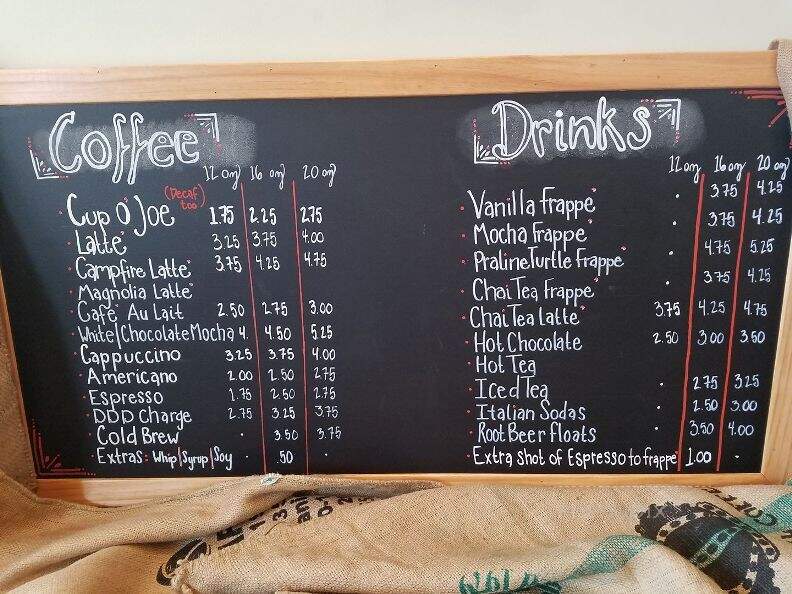 Coffee
12 oz 16 oz 20 oz
Cup O' Joe (Decaf too) 1.75 2.25 2.75
Latte 3.25 3.75 4.00
Campfire Latte 3.75 4.25 4.75
Magnolia Latte
Café Au Lait 2.50 2.75 3.00
White/Chocolate Mocha 4. 4.50 5.25
Cappuccino 3.25 3.75 4.00
Americano 2.00 2.50 2.75
Espresso 1.75 2.50 2.75
DDD Charge 2.75 3.25 3.75
Cold Brew . 3.50 3.75
Extras: Whip/Syrup/Soy . .50 .
Drinks
12 oz 16 oz 20 oz
Vanilla Frappe . 3.75 4.25
Mocha Frappe . 3.75 4.25
Praline Turtle Frappe . 4.75 5.25
Chai Tea Frappe . 3.75 4.25
Chai Tea Latte 3.75 4.25 4.75
Hot Chocolate 2.50 3.00 3.50
Hot Tea
Iced Tea . 2.75 3.25
Italian Sodas . 2.50 3.00
Root Beer Floats . 3.50 4.00
Extra Shot of Espresso to frappe 1.00 . .